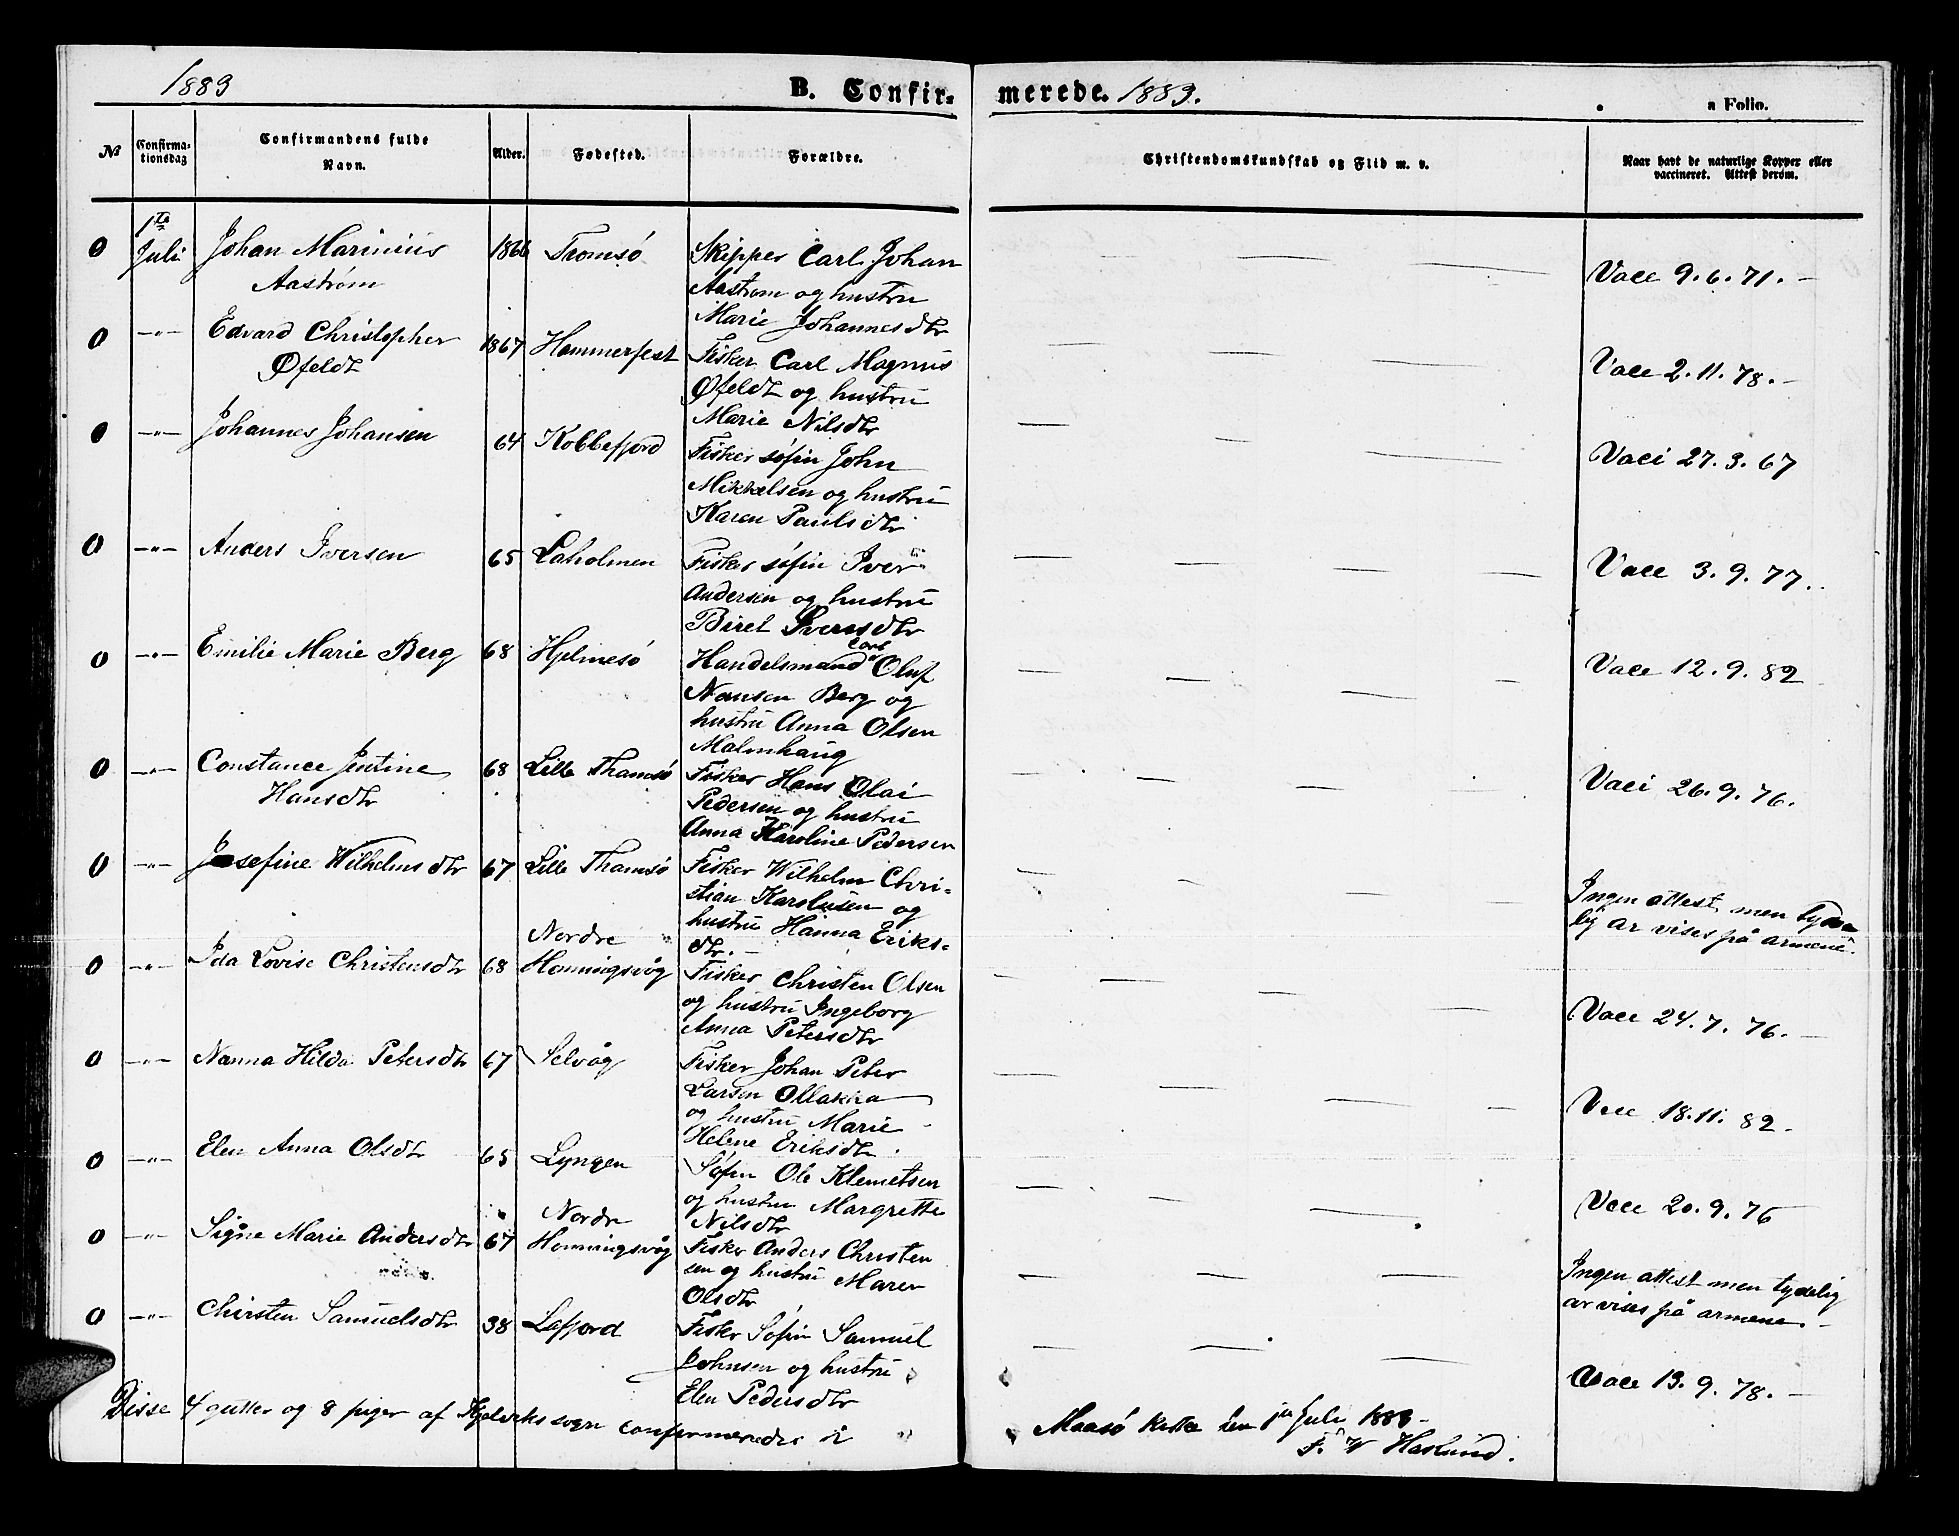 1883 B. Confir- merede. 1883. a Folio.
№ Confirma- tionsdag Confirmandens fulde Navn. Alder. Fødested. Forældre. Christendomskundskab og Flid m. v. Naar havt de naturlige Kopper eller vaccineret. Attest derom.
0 1te Juli Johan Marinius 1866 Tromsø Skipper Carl Johan Vacc 9.6.71.-
Aastrøm Aastrøm og hustru
Marie Johannesdtr
0 -"- Edvard Christopher 1867 Hammerfest Fisker Carl Magnus Vacc 2.11.78.-
Øfeldt Øfeldt og hustru
Marie Nilsdtr
0 -"- Johannes Johansen 64 Kobbefjord Fisker søfin John Vacc 27.3.67
Mikkelsen og hustru
Karen Paulsdtr
0 -"- Anders Iversen 65 Laholmen Fisker søfin Iver Vacc 3.9.77.
Andersen og hustru
Birel Iversdtr
0 -"- Emilie Marie Berg 68 Hjelmesø Handelsmand Oluf Vacc 12.9.82
Nansen Berg og
hustru Anna Olsen
Malmhaug
0 -"- Constance Jentine 68 Lille Thamsø Fisker Hans Olai Vacc 26.9.76.
Hansdtr Pedersen og hustru
Anna Karoline Pedersen
0 -"- Josefine Wilhelmsdtr 67 Lille Thamsø Fisker Wilhelm Chri- Ingen attest men tyde
stian Karolusen og lig ar vises på armene.
hustru Hanna Eriks-
dtr.-
0 -"- Ida Lovise Christensdtr 68 Nordre Honningsvåg Fisker Christen Olsen Vacc 24.7.76.-
og hustru Ingeborg
Anna Petersdtr
0 -"- Nanna Hilda Petersdtr 67 Selvåg Fisker Johan Peter Vacc 18.11.82.
Larsen Ollakka
og hustru Marie
Helene Eriksdtr.
0 -"- Elen Anna Olsdtr 65 Lyngen Søfin Ole Klemetsen Vacc 20.9.76
og hustru Margrette
Nilsdtr
0 -"- Signe Marie Andersdtr 67 Nordre Honningsvåg Fisker Anders Christen Ingen attest men tydelig
sen og hustru Maren ar vises på armene.-
Olsdtr
0 -"- Chirsten Samuelsdtr 38 Lafjord Fisker Søfin Samuel Vacc 13.9.78.-
Johnsen og hustru
Elen Pedersdtr
Disse 4 gutter og 8 piger af Kjelviks sogn confirmeredes i Maasø kirke den 1ste Juli 1883-
F. W Haslund.